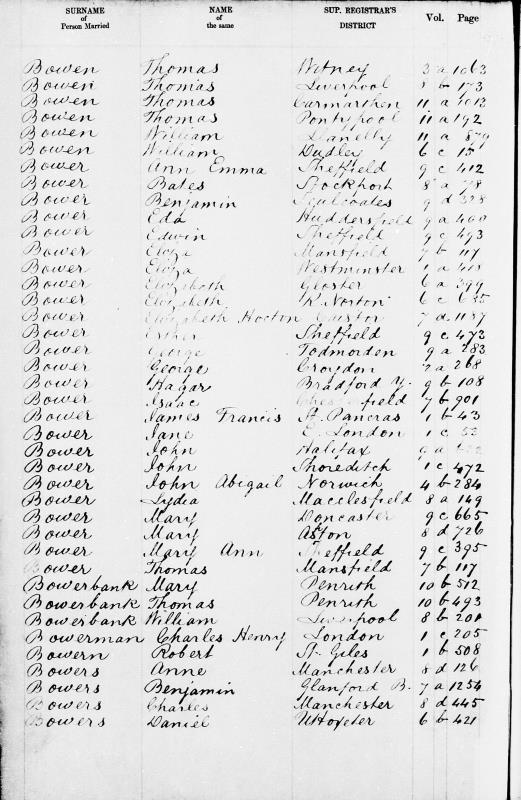 SURNAME of Person Married NAME of the same SUP. REGISTRAR'S DISTRICT Vol. Page
Bowen Thomas Witney 3 a 1063
Bowen Thomas Liverpool 8 b 173
Bowen Thomas Carmarthen 11 a 1013
Bowen Thomas Pontypool 11 a 192
Bowen William Llanelly 11 a 879
Bowen William Dudley 6 c 15
Bower Ann Emma Sheffield 9 c 412
Bower Bates Stockport 8 a 78
Bower Benjamin Sculcoates 9 d 328
Bower Eda Huddersfield 9 a 400
Bower Edwin Sheffield 9 c 493
Bower Eliza Mansfield 7 b 117
Bower Eliza Westminster 1 a
Bower Elizabeth Gloster 6 a 399
Bower Elizabeth K. Norton 6 c 655
Bower Elizabeth Hocton Caistor 7 d 1157
Bower Esther Sheffield 9 c 473
Bower George Todmorden 9 a 283
Bower George Croydon 2 a 268
Bower Hagar Bradford Y. 9 b 108
Bower Isaac Chesterfield 7 b 901
Bower James Francis St. Pancras 1 b 43
Bower Jane E. London 1 c 53
Bower John Halifax 9 a
Bower John Shoreditch 1 c 472
Bower John Abigail Norwich 4 b 284
Bower Lydia Macclesfield 8 a 149
Bower Mary Doncaster 9 c 665
Bower Mary Aston 8 d 726
Bower Mary Ann Sheffield 9 c 395
Bower Thomas Mansfield 7 b 117
Bowerbank Mary Penrith 10 b 512
Bowerbank Thomas Penrith 10 b 493
Bowerbank William Liverpool 8 b 201
Bowerman Charles Henry London 1 c 205
Bowern Robert St. Giles 1 b 508
Bowers Anne Manchester 8 d 126
Bowers Benjamin Glanford B. 7 a 1254
Bowers Charles Manchester 8 d 445
Bowers Daniel Uttoxeter 6 b 421